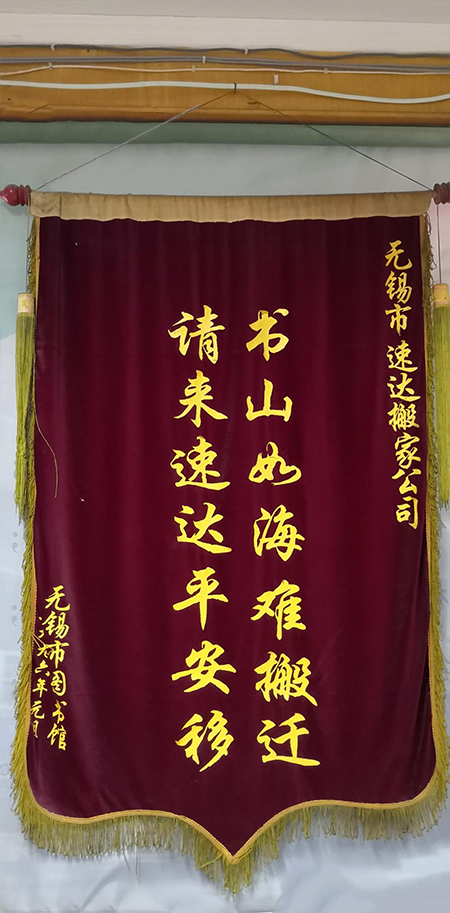 无锡市速达搬家公司
书山如海难搬迁
请来速达平安移
无锡市图书馆
六年元月